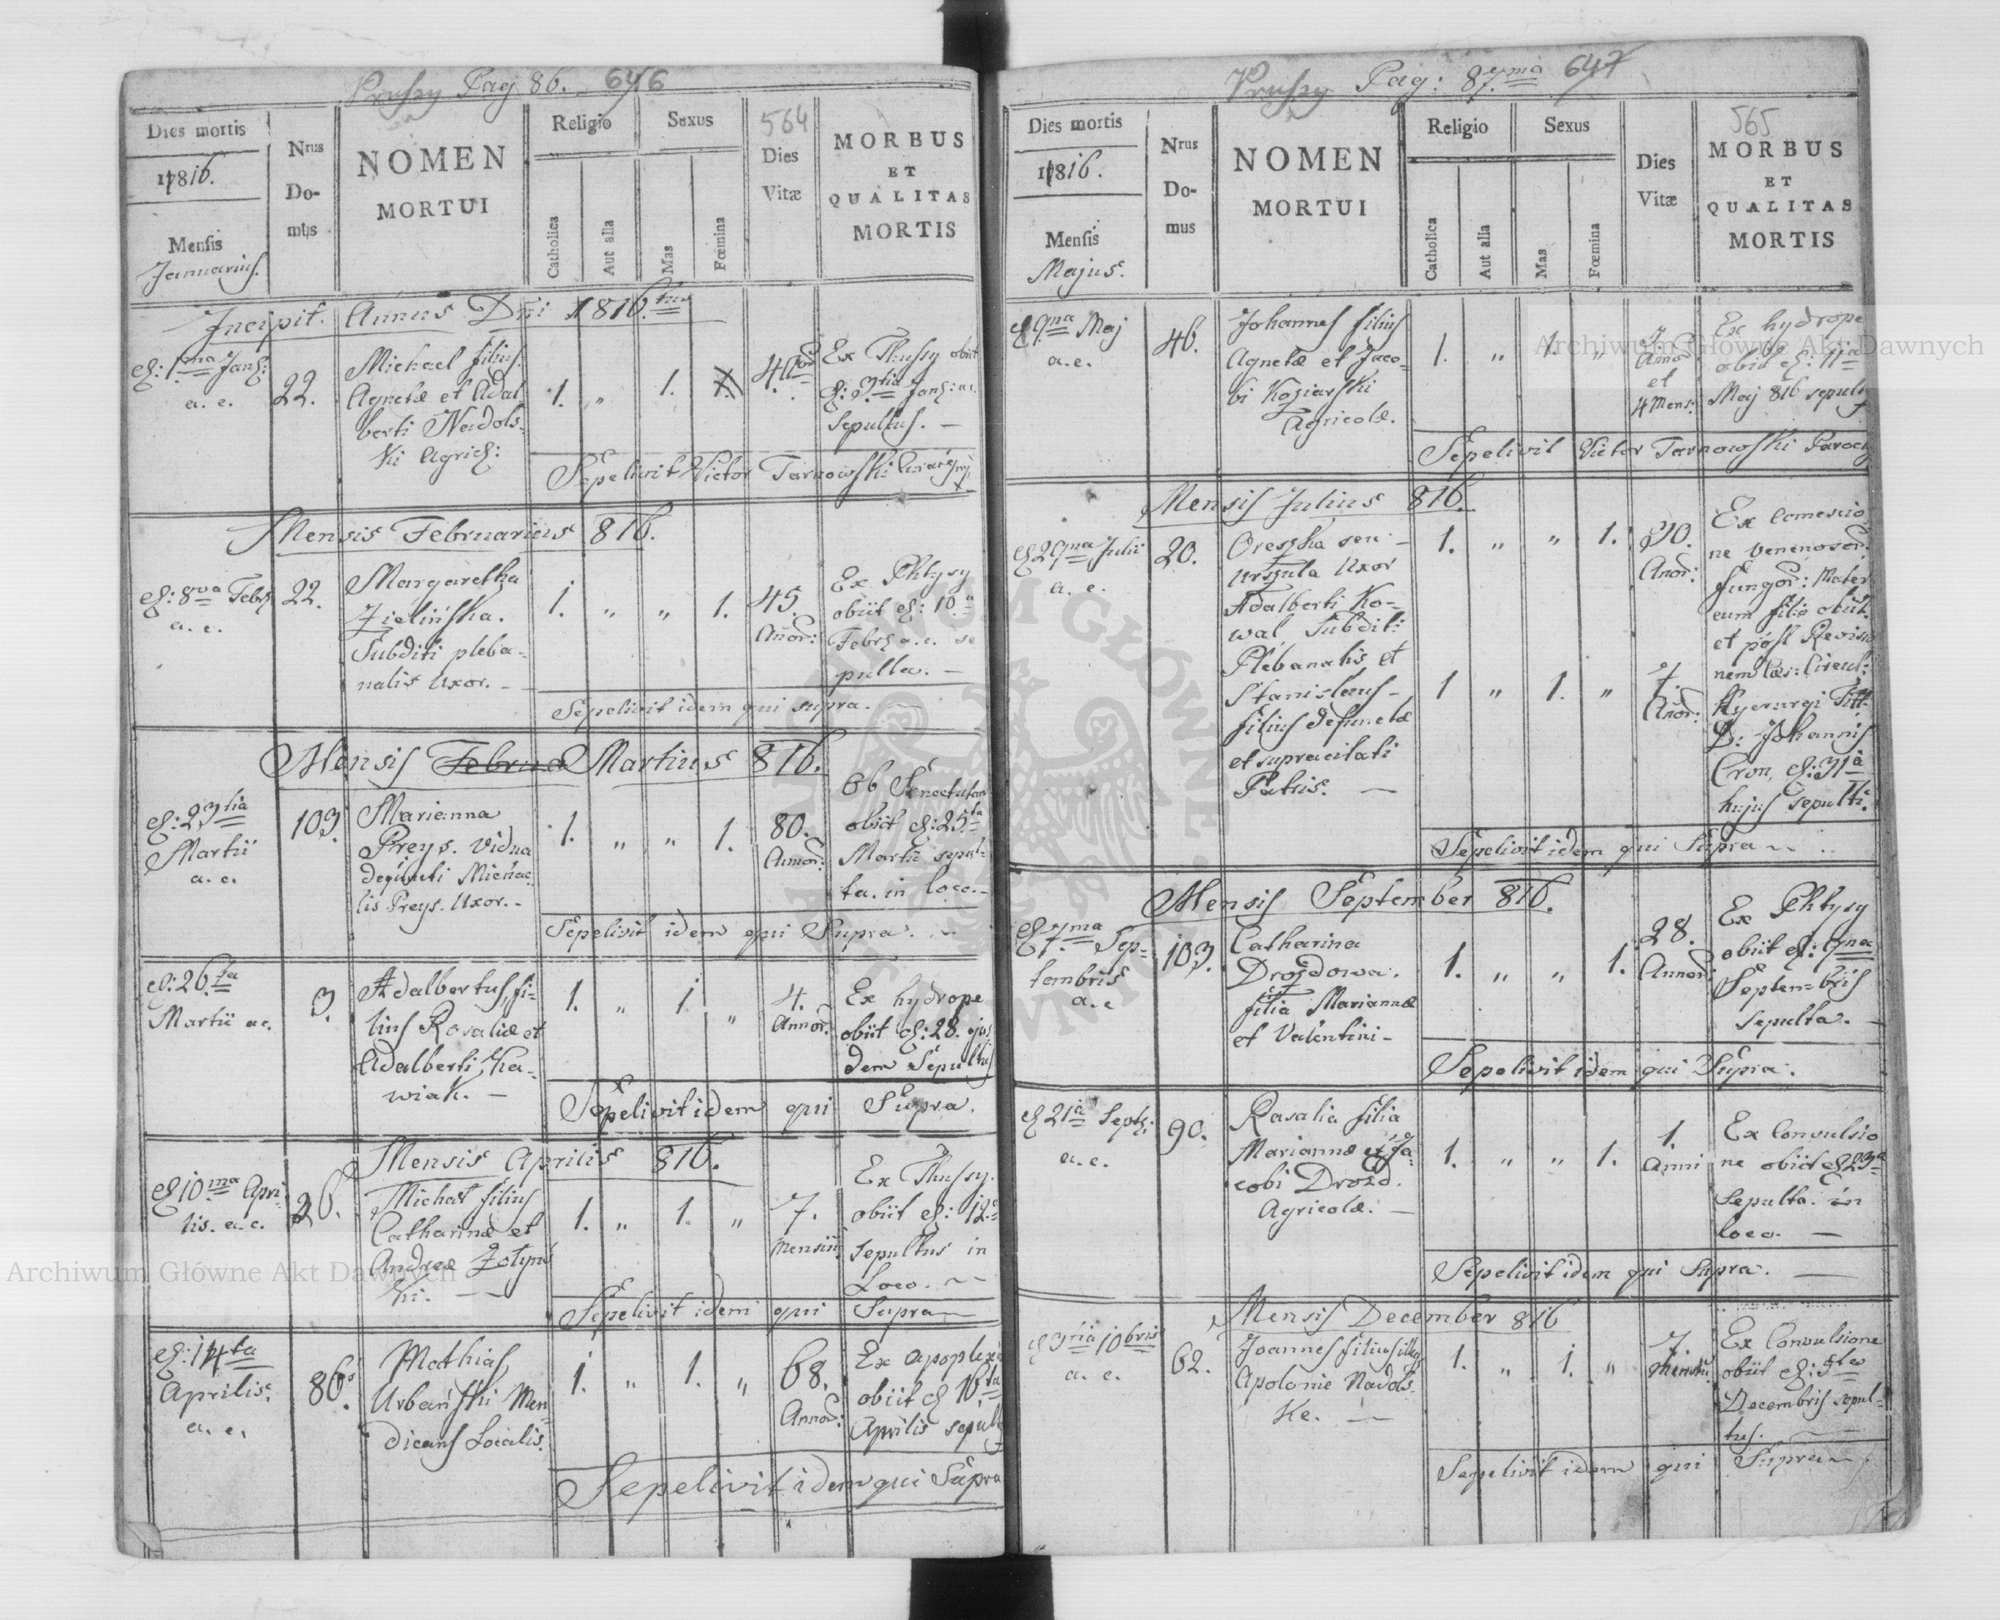 Prussy Pag 86. 646
Dies mortis
1816.
Mensis
Januarius.
Nrus
Do-
mus
NOMEN
MORTUI
Religio
Catholica
Aut alia
Sexus
Mas
Fœmina
564
Dies
Vitæ
MORBUS
ET
QUALITAS
MORTIS
Incipit Annus Dni 1816.tus
1ma Jan:
a. c.
22.
Michael filius
Agnetæ et Adal
berti Nadols-
ki Agric:
1.
"
1.
4.
Ex Thussy obiit
3tia Jan: a.c.
sepultus. —
Sepelivit Victor Tarnowski
Mensis Februarius 816.
8va Febr
a. c.
22.
Margaretha
Zielińska.
Subditi pleba-
nalis Uxor. —
1.
"
"
1.
45.
Anor:
Ex Phtysy
obiit 10.a
Febr a.c. se
pulta. —
Sepelivit idem qui supra. —
Mensis Martius 816.
23tia
Martii
a. c.
103.
Marianna
Preys. vidua
defuncti Michae-
lis Preys. Uxor. -
1.
"
"
1.
80.
Annor:
Ob Senectutem
obiit 25ta
Martii sepul-
ta. in loco. -
Sepelivit idem qui Supra.
26.ta
Martii ac.
3.
Adalbertus, fi-
lius Rosaliæ et
Adalberti
wiak. —
1.
"
1.
"
4.
Annor:
Ex hydrope
obiit 28. ejus
dem Sepultus
Sepelivit idem qui Supra.
Mensis Aprilis 816.
10.ma Apri-
lis. a. c.
26.
Michael filius
Catharinæ et
Andreæ Żołyńs
ki. —
1.
"
1.
"
7.
mensiu
Ex Thussy.
obiit 12.a
sepultus in
Loco. —
Sepelivit idem qui Supra
14ta
Aprilis.
a. c.
86.
Mathias
Urbański Men
dicans Localis.
1.
"
1.
"
68.
Annor:
Ex apoplexia
obiit 16ta
Aprilis sepult
Sepelivit idem qui Supra
Prussy Pag: 87.ma 647
Dies mortis
1816.
Mensis
Majus.
Nrus
Do-
mus
NOMEN
MORTUI
Religio
Catholica
Aut alia
Sexus
Mas
Fœmina
Dies
Vitæ
565
MORBUS
ET
QUALITAS
MORTIS
9na Maj
a.c.
46.
Johannes filius
Agnetæ et Jaco-
bi Koziarski
Agricolæ.
1.
"
1.
"
et
4 Mens:
Ex hydrope
obiit 11a
Maj 816 sepult
Sepelivit Victor Tarnowski Paroch
Mensis Julius 816.
29na Julii
a. c.
20.
Oreszka seu -
Urszula Uxor
Adalberti Ko-
wal Subditi
Plebanalis et
Stanislaus -
filius defunctæ
et supracitati
Patris. —
1.
"
"
1.
Anor:
1
"
1.
"
7.
Anor:
Ex Comestio
ne venenosor:
fungor: Mater
cum filio obiit.
et post Revisio
nem Cæs: Circul:
Hyrurgi Titt.
D: Johannis
Cron, 31a
hujus sepulti.
Sepelivit idem qui Supra
Mensis September 816.
7.ma Sep-
tembris
a. c
103.
Catharina
Drozdowa.
filia Mariannæ
et Valentini -
1.
"
"
1.
28.
Annor:
Ex Phtysy
obiit 9na
Septembris
sepulta. —
Sepelivit idem qui Supra.
21a Sept:
a. c.
90.
Rosalia filia
Mariannæ et Ja-
cobi Drozd.
Agricolæ. —
1.
"
"
1.
1.
Anni
Ex Convulsio
ne obiit 23a
Sepulta. in
loco. —
Sepelivit idem qui Supra. —
Mensis December 816
3tia 10bris
a. c.
62.
Joannes filius illeg
Apolonie Nadols-
ke. —
1.
"
1.
"
7.
Mensiu
Ex Convulsione
obiit 5ta
Decembris sepul-
tus. —
Sepelivit idem qui Supra
Archiwum Główne Akt Dawnych
Archiwum Główne Akt Dawnych
ARCHIWUM GŁÓWNE AKT DAWNYCH